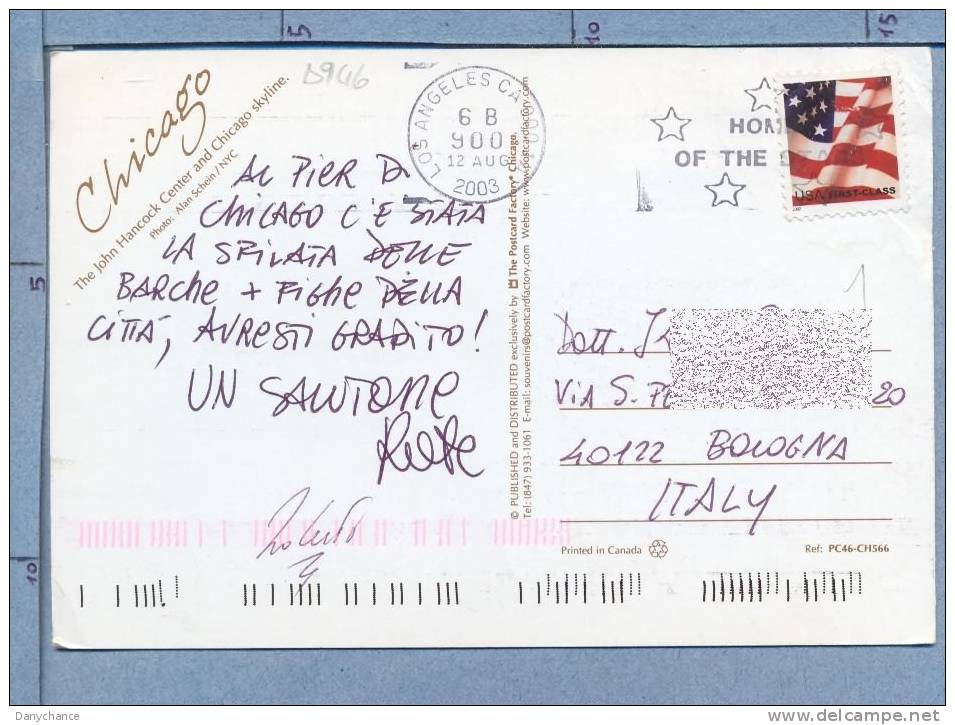 5
10
15
D946
Chicago
The John Hancock Center and Chicago skyline.
Photo: Alan Schein / NYC
LOS ANGELES CA 900
6 B
900
12 AUG
2003
HOM
OF THE
USA FIRST-CLASS
AL PIER DI
CHICAGO C'È STATA
LA SFILATA DELLE
BARCHE + FIGHE DELLA
CITTÀ, AVRESTI GRADITO!
UN SALUTONE
© PUBLISHED and DISTRIBUTED exclusively by The Postcard Factory® Chicago.
Tel: (847) 933-1061 E-mail: souvenirs@postcardfactory.com Website: www.postcardfactory.com
1
Dott.
VIA S.
20
40122 BOLOGNA
ITALY
Roberto
Printed in Canada
Ref: PC46-CH566
5
10
Danychance
www.delcampe.net